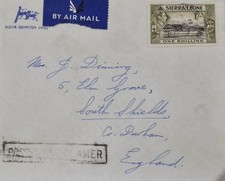 BY AIR MAIL
ELDER DEMPSTER LINES
SIERRA LEONE
ONE SHILLING
Mrs. J. Dinning,
5, Elm Grove,
South Shields,
Co. Durham,
England.